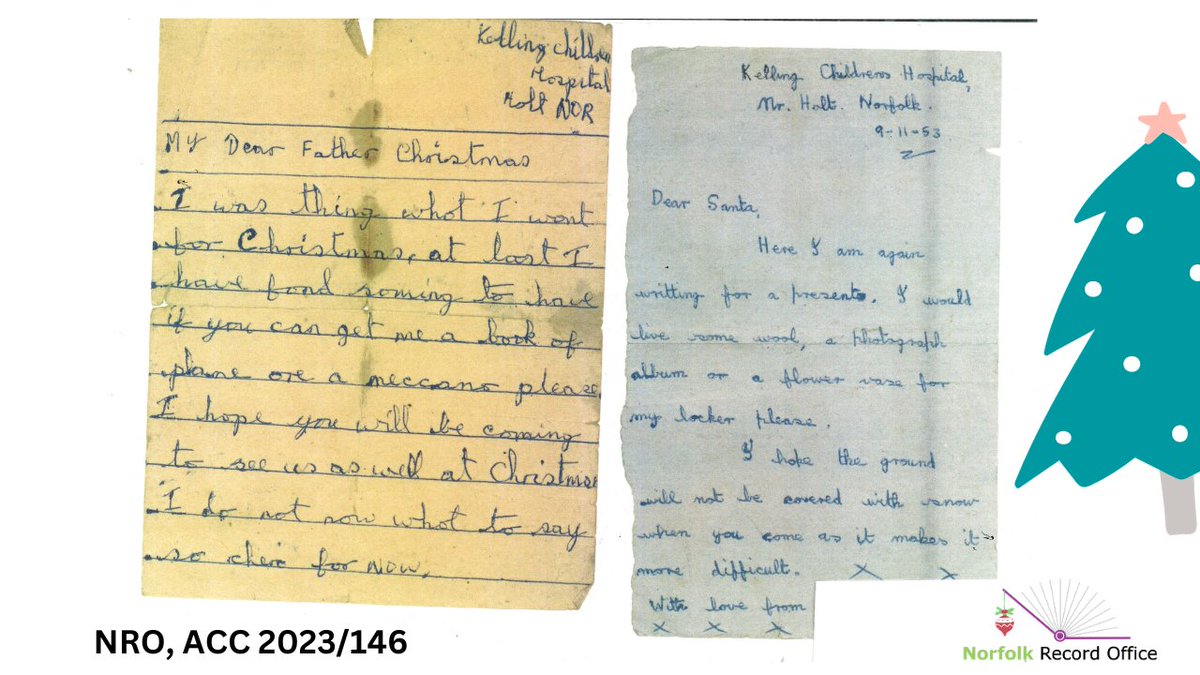 Kelling children
Hospital
Holt NOR
My Dear Father Christmas
I was thing whot I wont
for Christmas, at last I
have fond soming to have
if you can get me a book of
plane ore a meccano please.
I hope you will be coming
to see us as well at Christmas
I do not now what to say
so cheic for now.
Kelling Childrens Hospital,
Nr. Holt. Norfolk.
9-11-53
Dear Santa,
Here I am again
writting for a presents. I would
live some wool, a photograph
album or a flower vase for
my locker please.
I hope the ground
will not be covered with snow
when you come as it makes it
more difficult. X X
With love from
X X X
NRO, ACC 2023/146
Norfolk Record Office